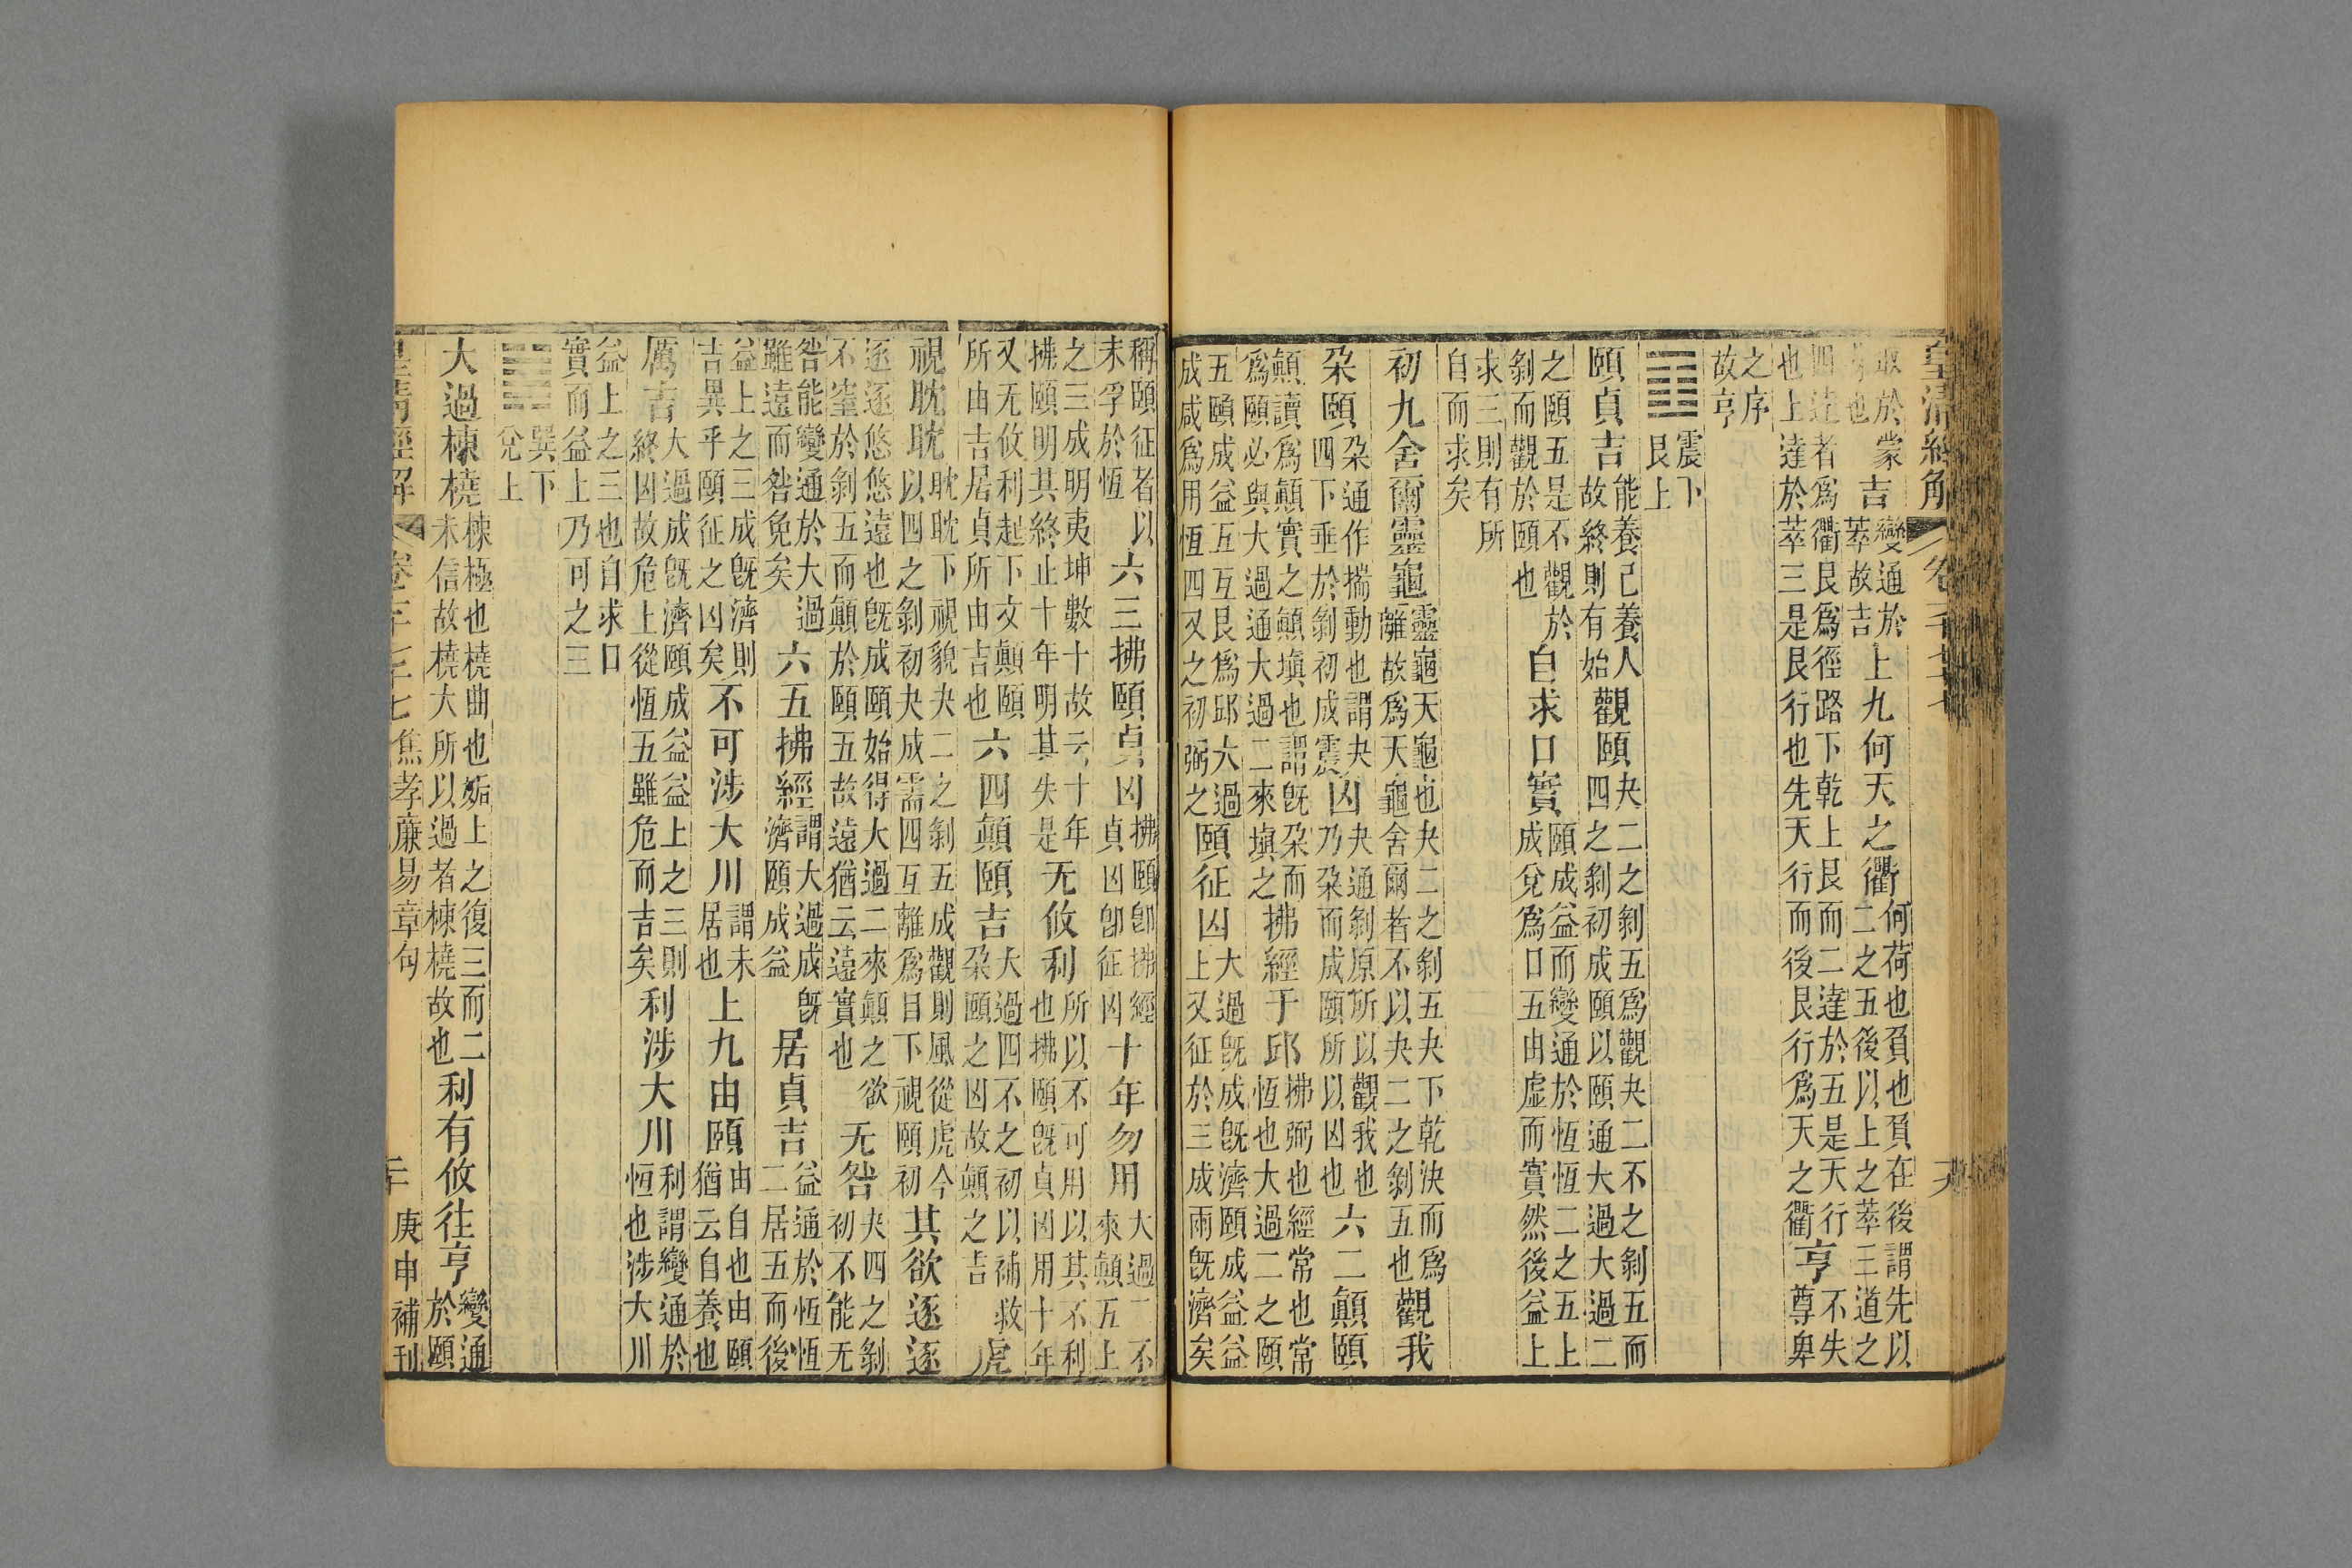 皇清經解 卷一千七十七
取於蒙也吉變通於萃故吉上九何天之衢何荷也負也負在後謂先以二之五後以上之萃三道之
四達者爲衢艮爲徑路下乾上艮而二達於五是天行也上達於萃三是艮行也先天行而後艮行爲天之衢亨不失尊卑
之序故亨
䷚震下艮上
頤貞吉能養己養人故終則有始觀頤夬二之剝五爲觀夬二不之剝五而四之剝初成頤以頤通大過大過二
之頤五是不觀於剝而觀於頤也自求口實頤成益而變通於恆恆二之五上成兌爲口五由虛而實然後益上
求三則有所自而求矣
初九舍爾靈龜靈龜天龜也夬二之剝五夬下乾決而爲離故爲天龜舍爾者不以夬二之剝五也觀我
朵頤朵通作揣動也謂夬四下垂於剝初成震凶夬通剝原所以觀我也乃朵而成頤所以凶也六二顛頤
顛讀爲顛實之顛塡也謂旣朵而爲頤必與大過通大過二來塡之拂經于邱拂弼也經常也常恆也大過二之頤
五頤成益互互艮爲邱大過成咸爲用恆四又之初弼之頤征凶大過旣成旣濟頤成益益上又征於三成兩旣濟矣
稱頤征者以未孚於恆六三拂頤貞凶拂頤卽拂經貞凶卽征凶十年勿用大過二不來顛五上
之三成明夷坤數十故云十年拂頤明其終止十年明其失是无攸利所以不可用以其不利也拂頤旣貞凶用十年
又无攸利起下文顛頤所由吉居貞所由吉也六四顛頤吉大過四不之初以補救朵頤之凶故顛之吉虎
視耽耽耽耽下視貌夬二之剝五成觀則風從虎今以四之剝初夬成需四互離爲目下視頤初其欲逐逐
逐逐悠悠遠也旣成頤始得大過二來顛之欲不窒於剝五而顛於頤五故遠猶云遠實也无咎夬四之剝初不能无
咎能變通於大過雖遠而咎免矣六五拂經謂大過成旣濟頤成益居貞吉益通於恆恆二居五而後
益上之三成旣濟則吉異乎頤征之凶矣不可涉大川謂未居也上九由頤由自也由頤猶云自養也
厲吉大過成旣濟頤成益益上之三則終凶故危上從恆五雖危而吉矣利涉大川利謂變通於恆也涉大川
益上之三也自求口實而益上乃可之三
䷛巽下兌上
大過棟橈棟極也橈曲也姤上之復三而二未信故橈大所以過者棟橈故也利有攸往亨變通於頤
皇清經解 卷一千七十七 焦孝廉易章句 庚申補刊